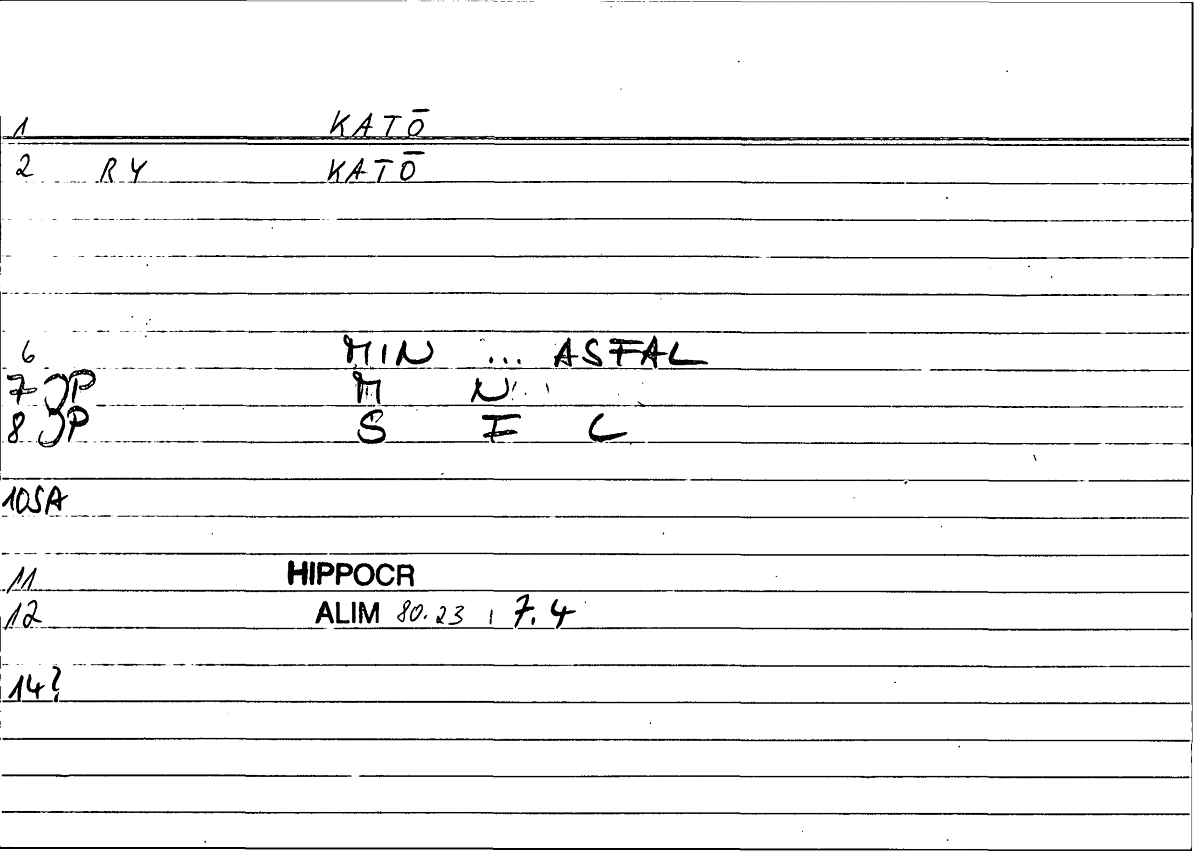 1 KATŌ
2 RY KATŌ
6 MIN ... ASFAL
7 JP M N
8 JP S F L
10 SA
11 HIPPOCR
12 ALIM 80.23 , 7.4
14?